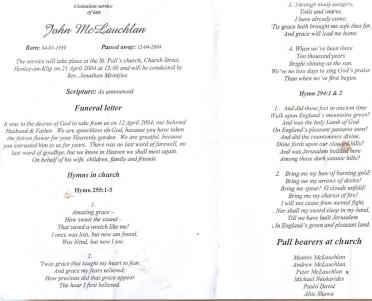 Cremation service
of late
John McLauchlan
Born: 04-01-1939 Passed away: 12-04-2004
The service will take place at the St. Paul's church, Church Street,
Henley-on-Klip on 21 April 2004 at 15:00 and will be conducted by
Rev. Jonathan Meintjies.
Scripture: As announced.
Funeral letter
It was in the decree of God to take from us on 12 April 2004, our beloved
Husband & Father. We are speechless oh God, because you have taken
the fairest flower for your Heavenly garden. We are greatful, because
you entrusted him to us for years. There was no last word of farewell, no
last word of goodbye, but we know in Heaven we shall meet again.
On behalf of his wife, children, family and friends.
Hymns in church
Hymn 255:1-3
1.
Amazing grace –
How sweet the sound –
That saved a wretch like me!
I once was lost, but now am found,
Was blind, but now I see.
2.
'Twas grace that taught my heart to fear,
And grace my fears believed;
How precious did that grace appear
The hour I first believed.
3. Through many dangers,
Toils and snares,
I have already come;
'Tis grace hath brought me safe thus far,
And grace will lead me home.
4. When we've been there
Ten thousand years
Bright shining as the sun,
We've no less days to sing God's praise
Than when we've first begun.
Hymn 294:1 & 2
1. And did those feet in ancient time
Walk upon England's mountains green?
And was the holy Lamb of God
On England's pleasant pastures seen?
And did the countenance divine,
Shine forth upon our clouded hills?
And was Jerusalem builded here
Among those dark satanic hills?
2. Bring me my bow of burning gold!
Bring me my arrows of desire!
Bring me my spear! O clouds unfold!
Bring me my chariot of fire!
I will not cease from mental fight,
Nor shall my sword sleep in my hand,
Till we have built Jerusalem
In England's green and pleasant land.
Pall bearers at church
Mannie McLauchlan
Andrew McLauchlan
Peter McLauchlan
Michael
Paulo David
Abie Shawa